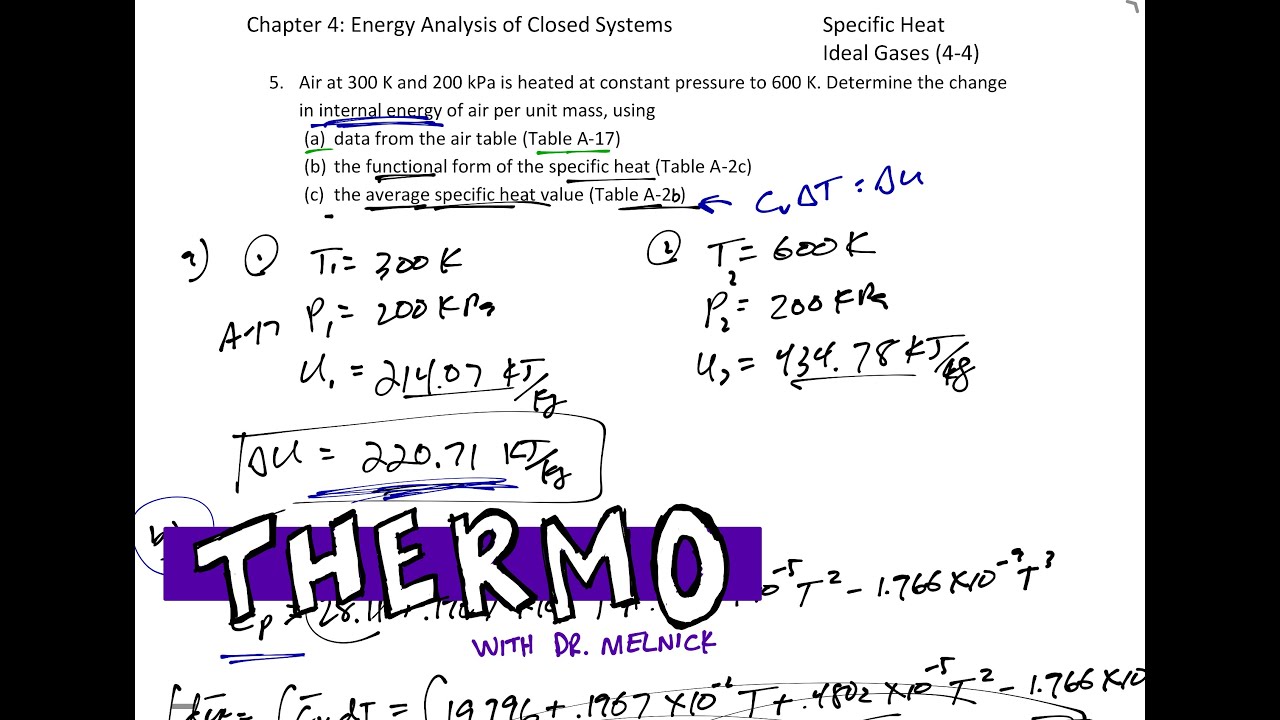 Chapter 4: Energy Analysis of Closed Systems
Specific Heat
Ideal Gases (4-4)
5. Air at 300 K and 200 kPa is heated at constant pressure to 600 K. Determine the change
in internal energy of air per unit mass, using
(a) data from the air table (Table A-17)
(b) the functional form of the specific heat (Table A-2c)
(c) the average specific heat value (Table A-2b)
← Cv ΔT = Δu
a) ① T₁ = 300 K
② T₂ = 600 K
A-17 P₁ = 200 KPa
P₂ = 200 KPa
u₁ = 214.07 KJ/Kg
u₂ = 434.78 KJ/Kg
Δu = 220.71 KJ/Kg
THERMO
WITH DR. MELNICK
⁻⁵T² - 1.766 X10⁻⁹T³
Cp = 28.11
∫dū = ∫C̄v dT = ∫(19.796 + .1967 X10⁻² T + .4802 X10⁻⁵ T² - 1.766 X10